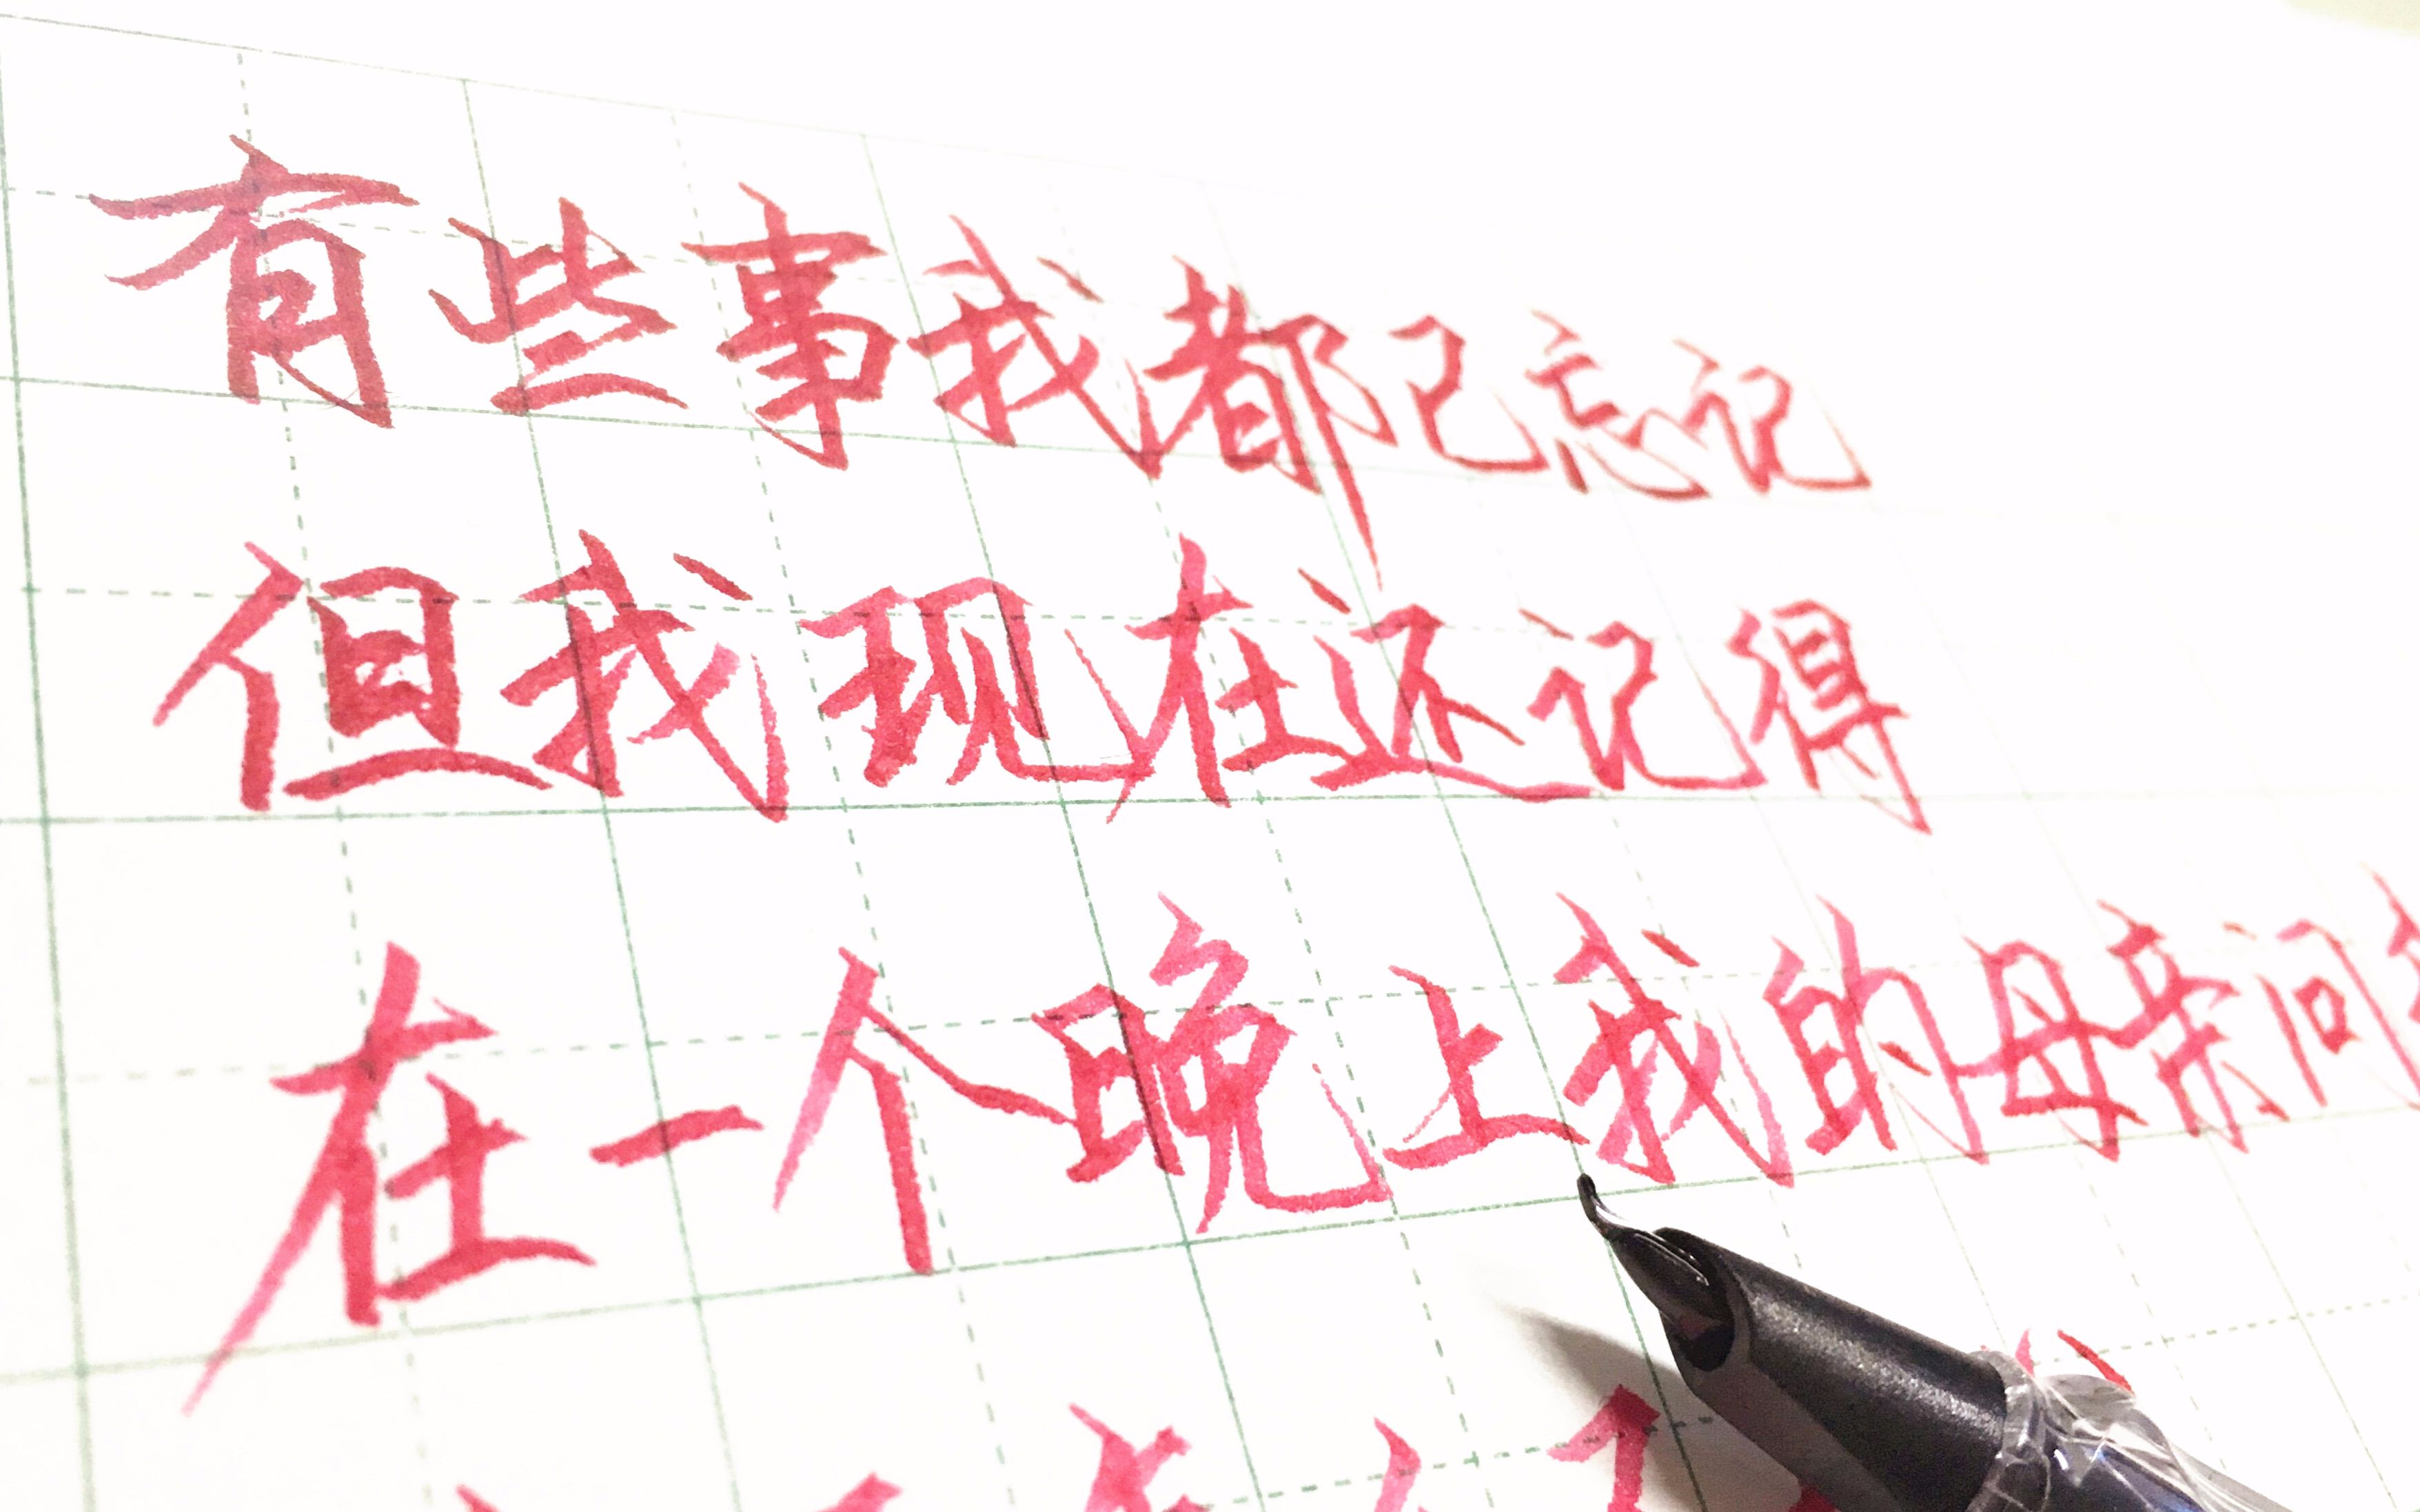 有些事我都已忘记
但我现在还记得
在一个晚上我的母亲问